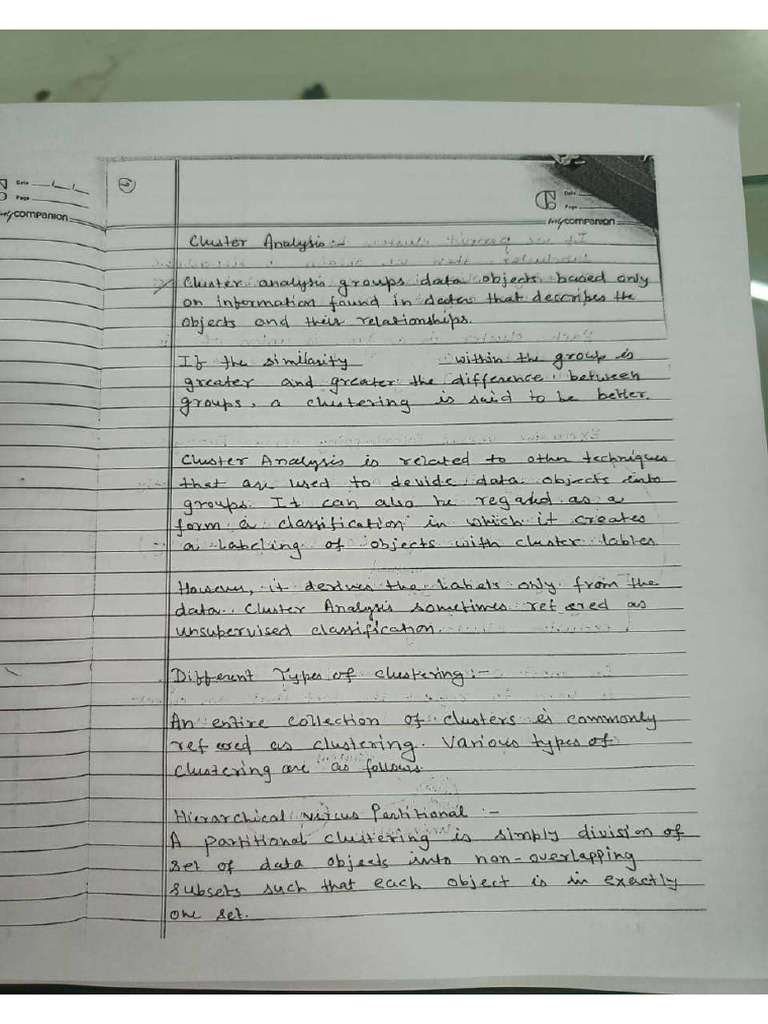 Date
Page
companion
2
Date
Page
companion
Cluster Analysis :-
Cluster analysis groups data objects based only
on information found in data that describes the
objects and their relationships.
If the similarity within the group is
greater and greater the difference between
groups, a clustering is said to be better.
Cluster Analysis is related to other techniques
that are used to devide data objects into
groups. It can also be regarded as a
form a classification in which it creates
a labeling of objects with cluster lables
However, it derives the labels only from the
data. Cluster Analysis sometimes refered as
unsupervised classification.
Different Types of clustering :-
An entire collection of clusters is commonly
refered as clustering. Various types of
clustering are as follows.
Hierarchical versus Partitional :-
A partitional clustering is simply division of
set of data objects into non-overlapping
subsets such that each object is in exactly
one set.